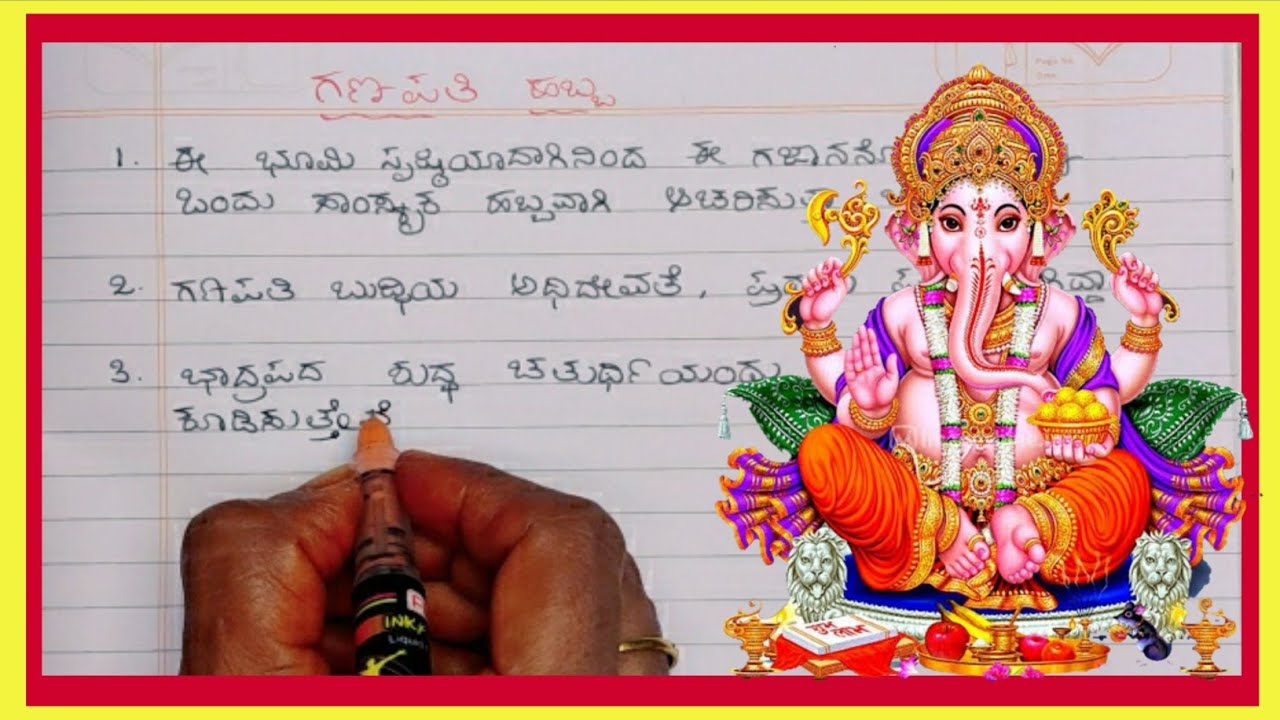 ಗಣಪತಿ ಹಬ್ಬ
1. ಈ ಭೂಮಿ ಸೃಷ್ಠಿಯಾದಾಗಿನಿಂದ ಈ ಗಜಾನನೋ
ಒಂದು ಸಾಂಸ್ಕೃತ ಹಬ್ಬವಾಗಿ ಆಚರಿಸುತ್ತಾ
2. ಗಣಪತಿ ಬುದ್ಧಿಯ ಅಧಿದೇವತೆ,
3. ಭಾದ್ರಪದ ಶುದ್ಧ ಚತುರ್ಥಿಯಂದು
ಕೂಡಿಸುತ್ತೇವೆ
शुभ लाभ
INK